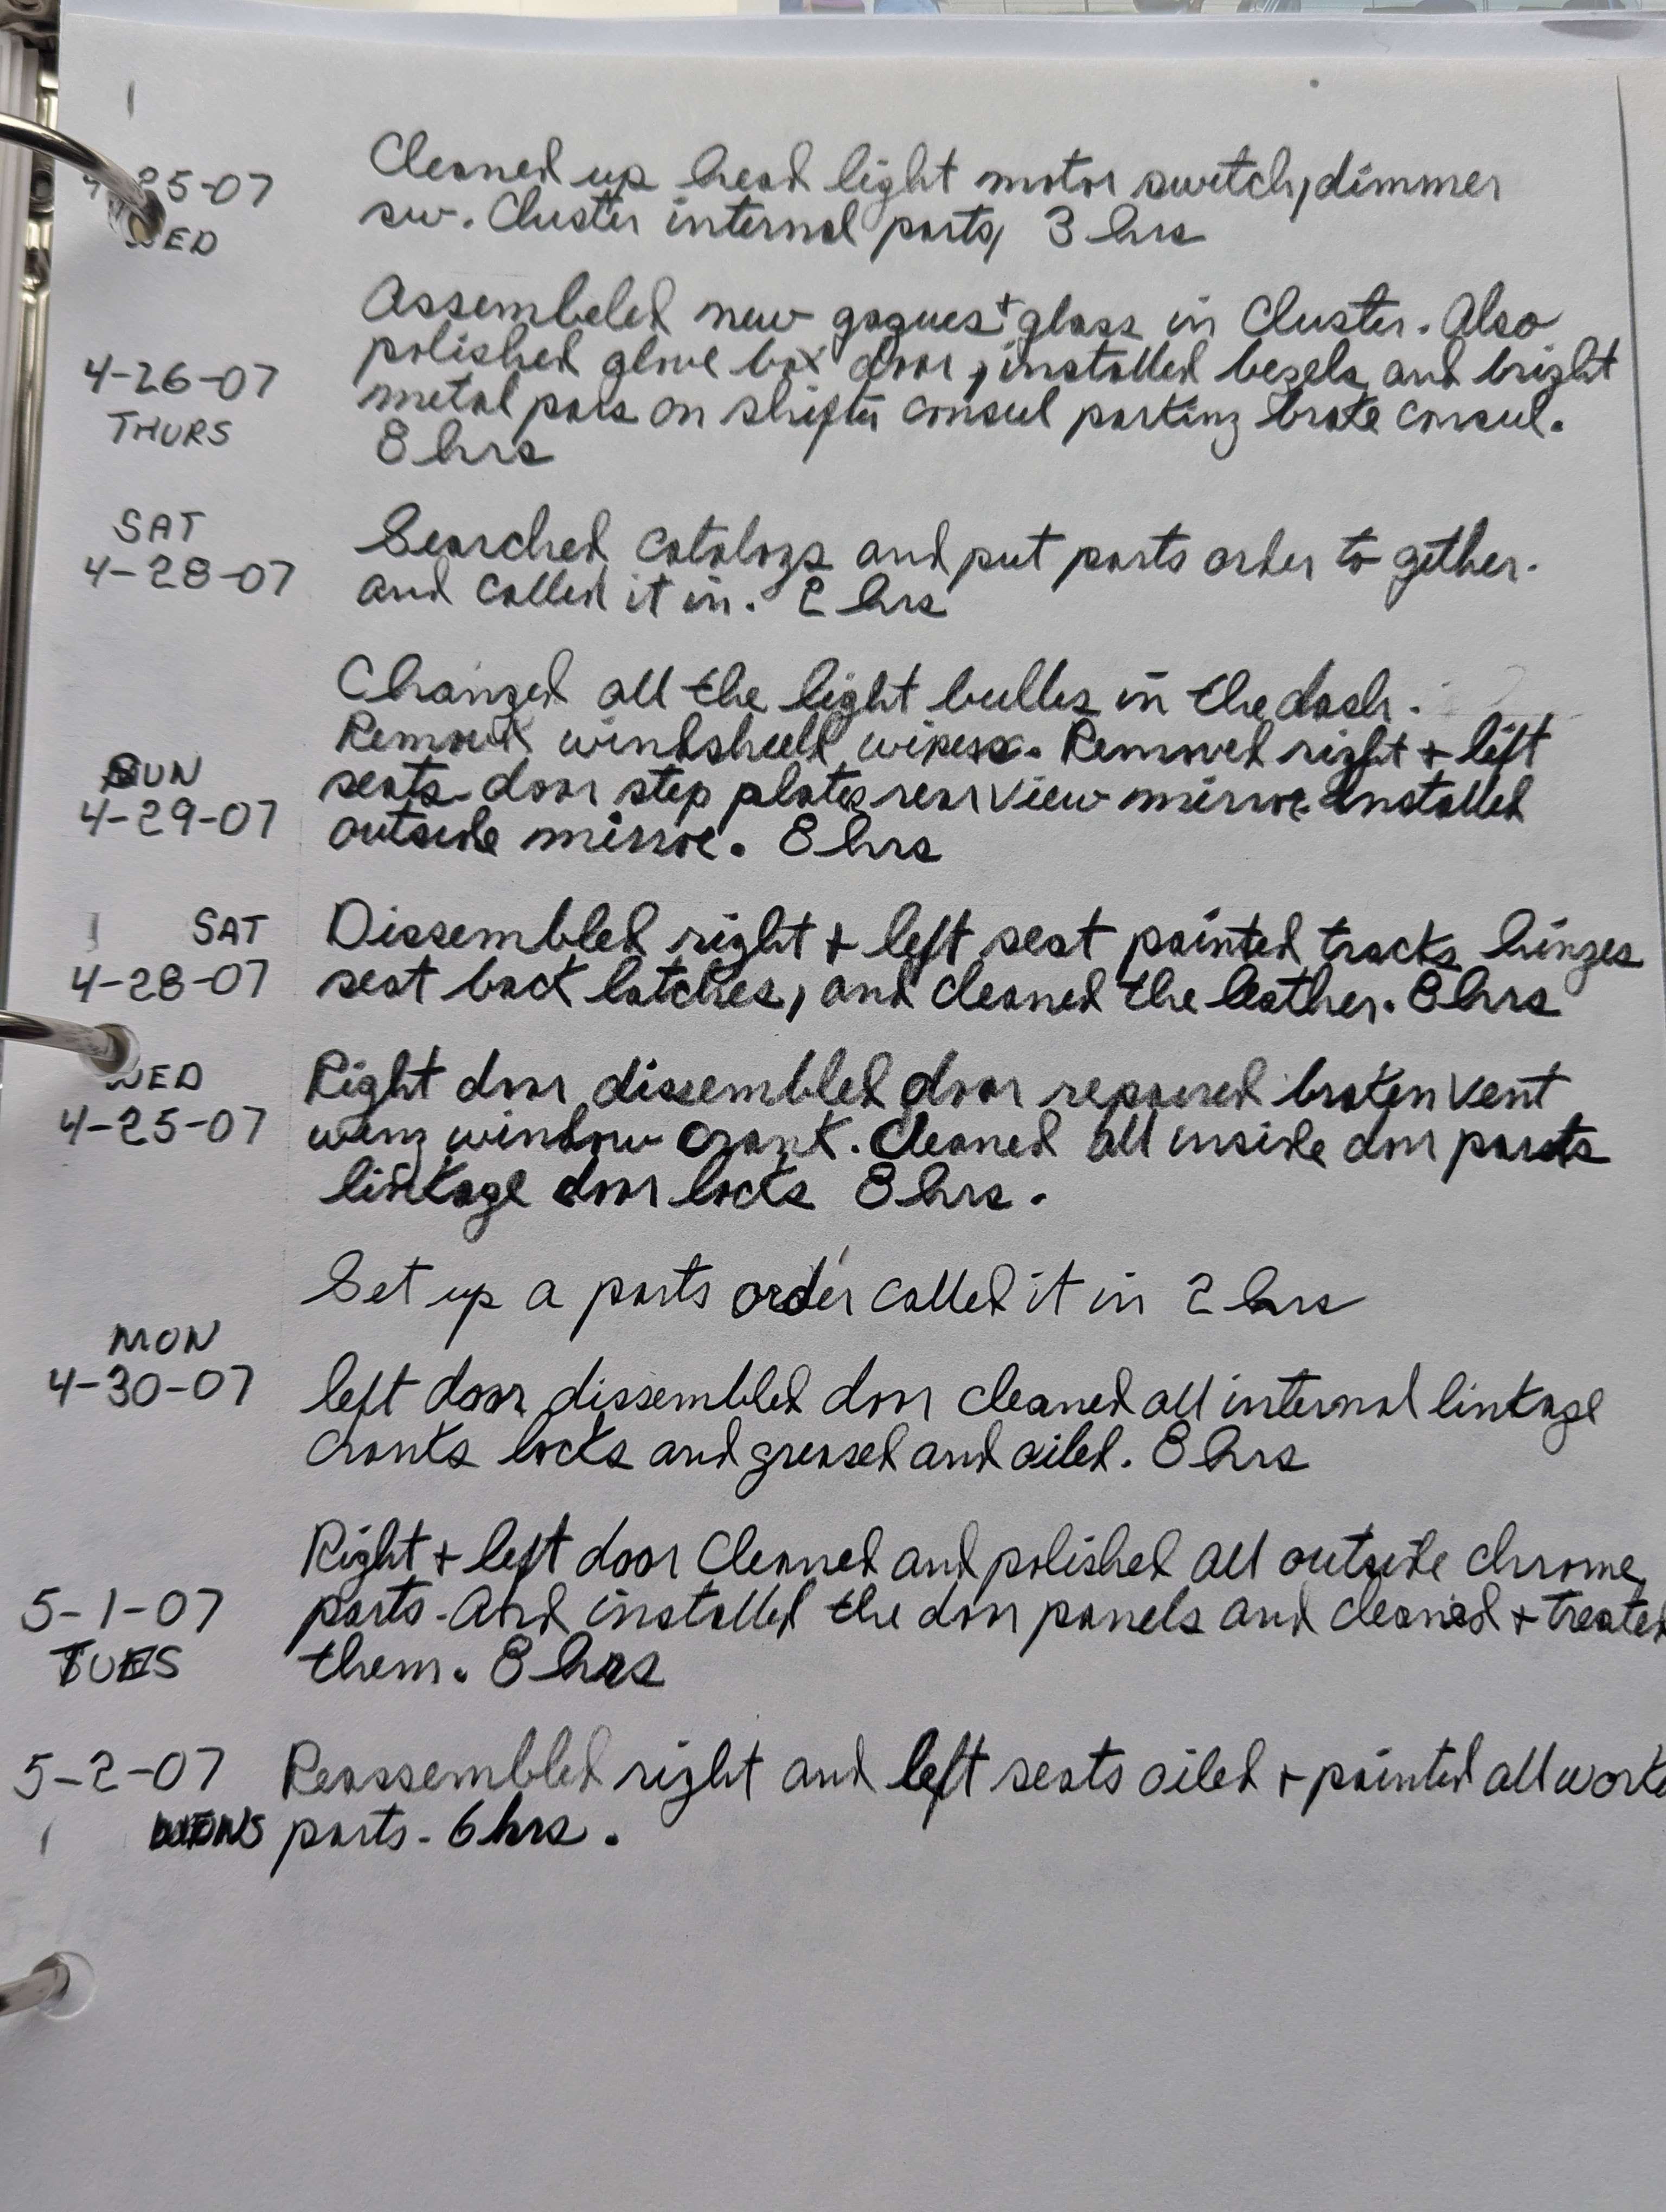 4-25-07
WED
Cleaned up head light motor switch, dimmer
sw. Cluster internal parts, 3 hrs
4-26-07
THURS
Assembeled new gagues + glass in Cluster. Also
polished glove box door, installed bezels and bright
metal pars on shifter consul parking brake consul.
8 hrs
SAT
4-28-07
Searched catalogs and put parts order to gether.
and called it in. 2 hrs
SUN
4-29-07
Changed all the light bulbs in the dash.
Removed windsheeld wipers. Removed right + left
seats door step plates rear view mirror. Installed
outside mirror. 8 hrs
SAT
4-28-07
Dissembled right + left seat painted tracks hinges
seat back latches, and cleaned the leather. 8 hrs
WED
4-25-07
Right door dissembled door repaired broken vent
wing window crank. Cleaned all inside door parts
linkage door locks 8 hrs.
Set up a parts order called it in 2 hrs
MON
4-30-07
left door dissembled door cleaned all internal linkage
cranks locks and greased and oiled. 8 hrs
5-1-07
TUES
Right + left door Cleaned and polished all outside chrome
parts. And installed the door panels and cleaned + treated
them. 8 hrs
5-2-07
Reassembled right and left seats oiled + painted all
parts. 6 hrs.